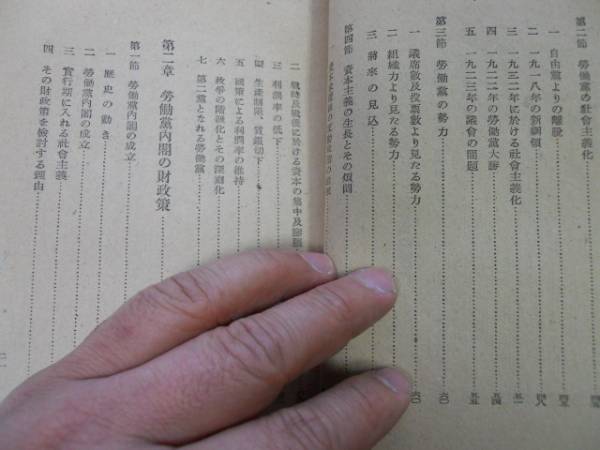 第二節 勞働黨の社會主義化
一 自由黨よりの離脫
二 一九一八年の新綱領
三 一九二二年に於ける社會主義化
四 一九二二年の勞働黨大勝
五 一九二三年の議會の問題
第三節 勞働黨の勢力
一 議席數及投票數より見たる勢力
二 組織力より見たる勢力
三 將來の見込
第四節 資本主義の生長とその煩悶
二 戰時及戰後に於ける資本の集中及
三 利潤率の低下
四 生產制限、賃銀切下
五 國策による利潤率の維持
六 政爭の階級化とその深刻化
七 第二黨となれる勞働黨
第二章 勞働黨內閣の財政策
第一節 勞働黨內閣の成立
一 歷史の動き
二 勞働黨內閣の成立
三 實行期に入れる社會主義
四 その財政策を檢討する理由